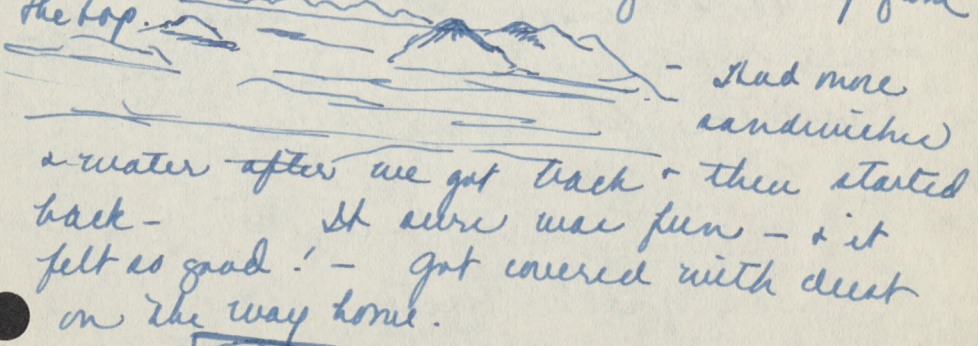 the top.
- Had more
sandwiches
& water after we got back & then started
back - It sure was fun - & it
felt so good! - Got covered with dust
on the way home.